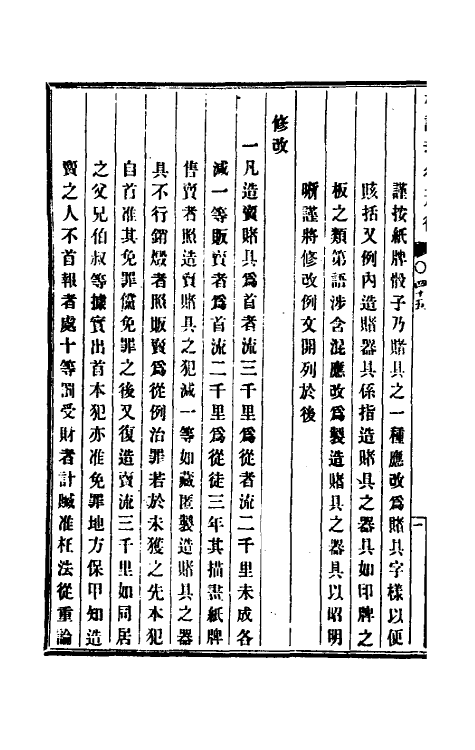 謹按紙牌骰子乃賭具之一種應改爲賭具字樣以便
賅括又例內造賭器具係指造賭具之器具如印牌之
板之類第語涉含混應改爲製造賭具之器具以昭明
晰謹將修改例文開列於後
修改
一凡造賣賭具爲首者流三千里爲從者流二千里未成各
減一等販賣者爲首流二千里爲從徒三年其描畫紙牌
售賣者照造賣賭具之犯減一等如藏匿製造賭具之器
具不行銷燬者照販賣爲從例治罪若於未獲之先本犯
自首准其免罪儻免罪之後又復造賣流三千里如同居
之父兄伯叔等據實出首本犯亦准免罪地方保甲知造
賣之人不首報者處十等罰受財者計贓准枉法從重論